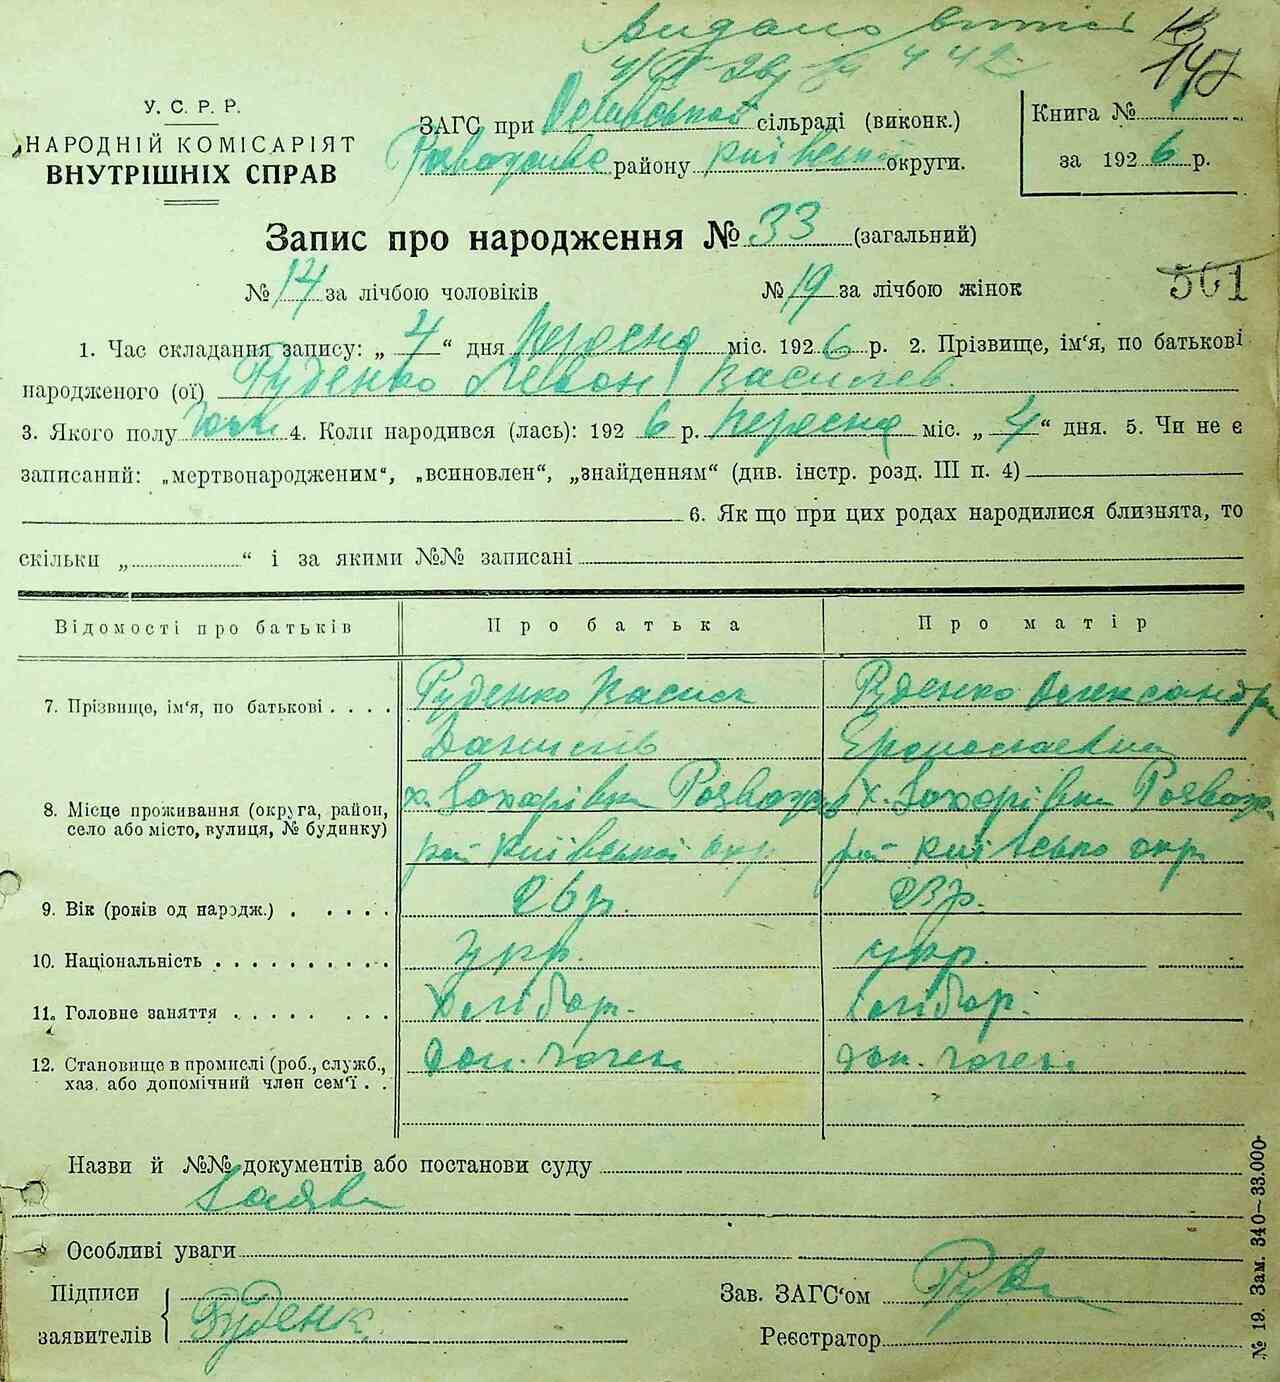 Видано витяг
147
У. С. Р. Р.
НАРОДНІЙ КОМІСАРІЯТ
ВНУТРІШНІХ СПРАВ
ЗАГС при сільраді (виконк.)
району Київської округи.
Книга №
за 1926 р.
Запис про народження № 33 (загальний)
№ 14 за лічбою чоловіків № 19 за лічбою жінок
501
1. Час складання запису: „ 4 “ дня Вересня міс. 1926 р. 2. Прізвище, ім‘я, по батькові
народженого (ої) Руденко Левон Василев.
3. Якого полу чолов 4. Коли народився (лась): 1926 р. Вересня міс. „ 4 “ дня. 5. Чи не є
записаний: „мертвонародженим“, „всиновлен“, „знайденням“ (див. інстр. розд. III п. 4)
6. Як що при цих родах народилися близнята, то
скільки „ “ і за якими №№ записані
Відомості про батьків Про батька Про матір
7. Прізвище, ім‘я, по батькові . . . . Руденко Василь Руденко Олександра
Данилів
8. Місце проживання (округа, район, х. Захарівка х. Захарівка
село або місто, вулиця, № будинку) рай Київської окр рай Київсько окр
9. Вік (років од народж.) . . . . . 26 р. 23 р.
10. Національність . . . . . . . . . . укр. укр.
11. Головне заняття . . . . . . . . Хлібор. Хлібор.
12. Становище в промислі (роб., служб., доп. член доп. член
хаз. або допомічний член сем‘ї . .
Назви й №№ документів або постанови суду
Заява
Особливі уваги
Підписи
заявителів Руденк
Зав. ЗАГС‘ом
Реєстратор
№ 19. Зам. 340—33.000